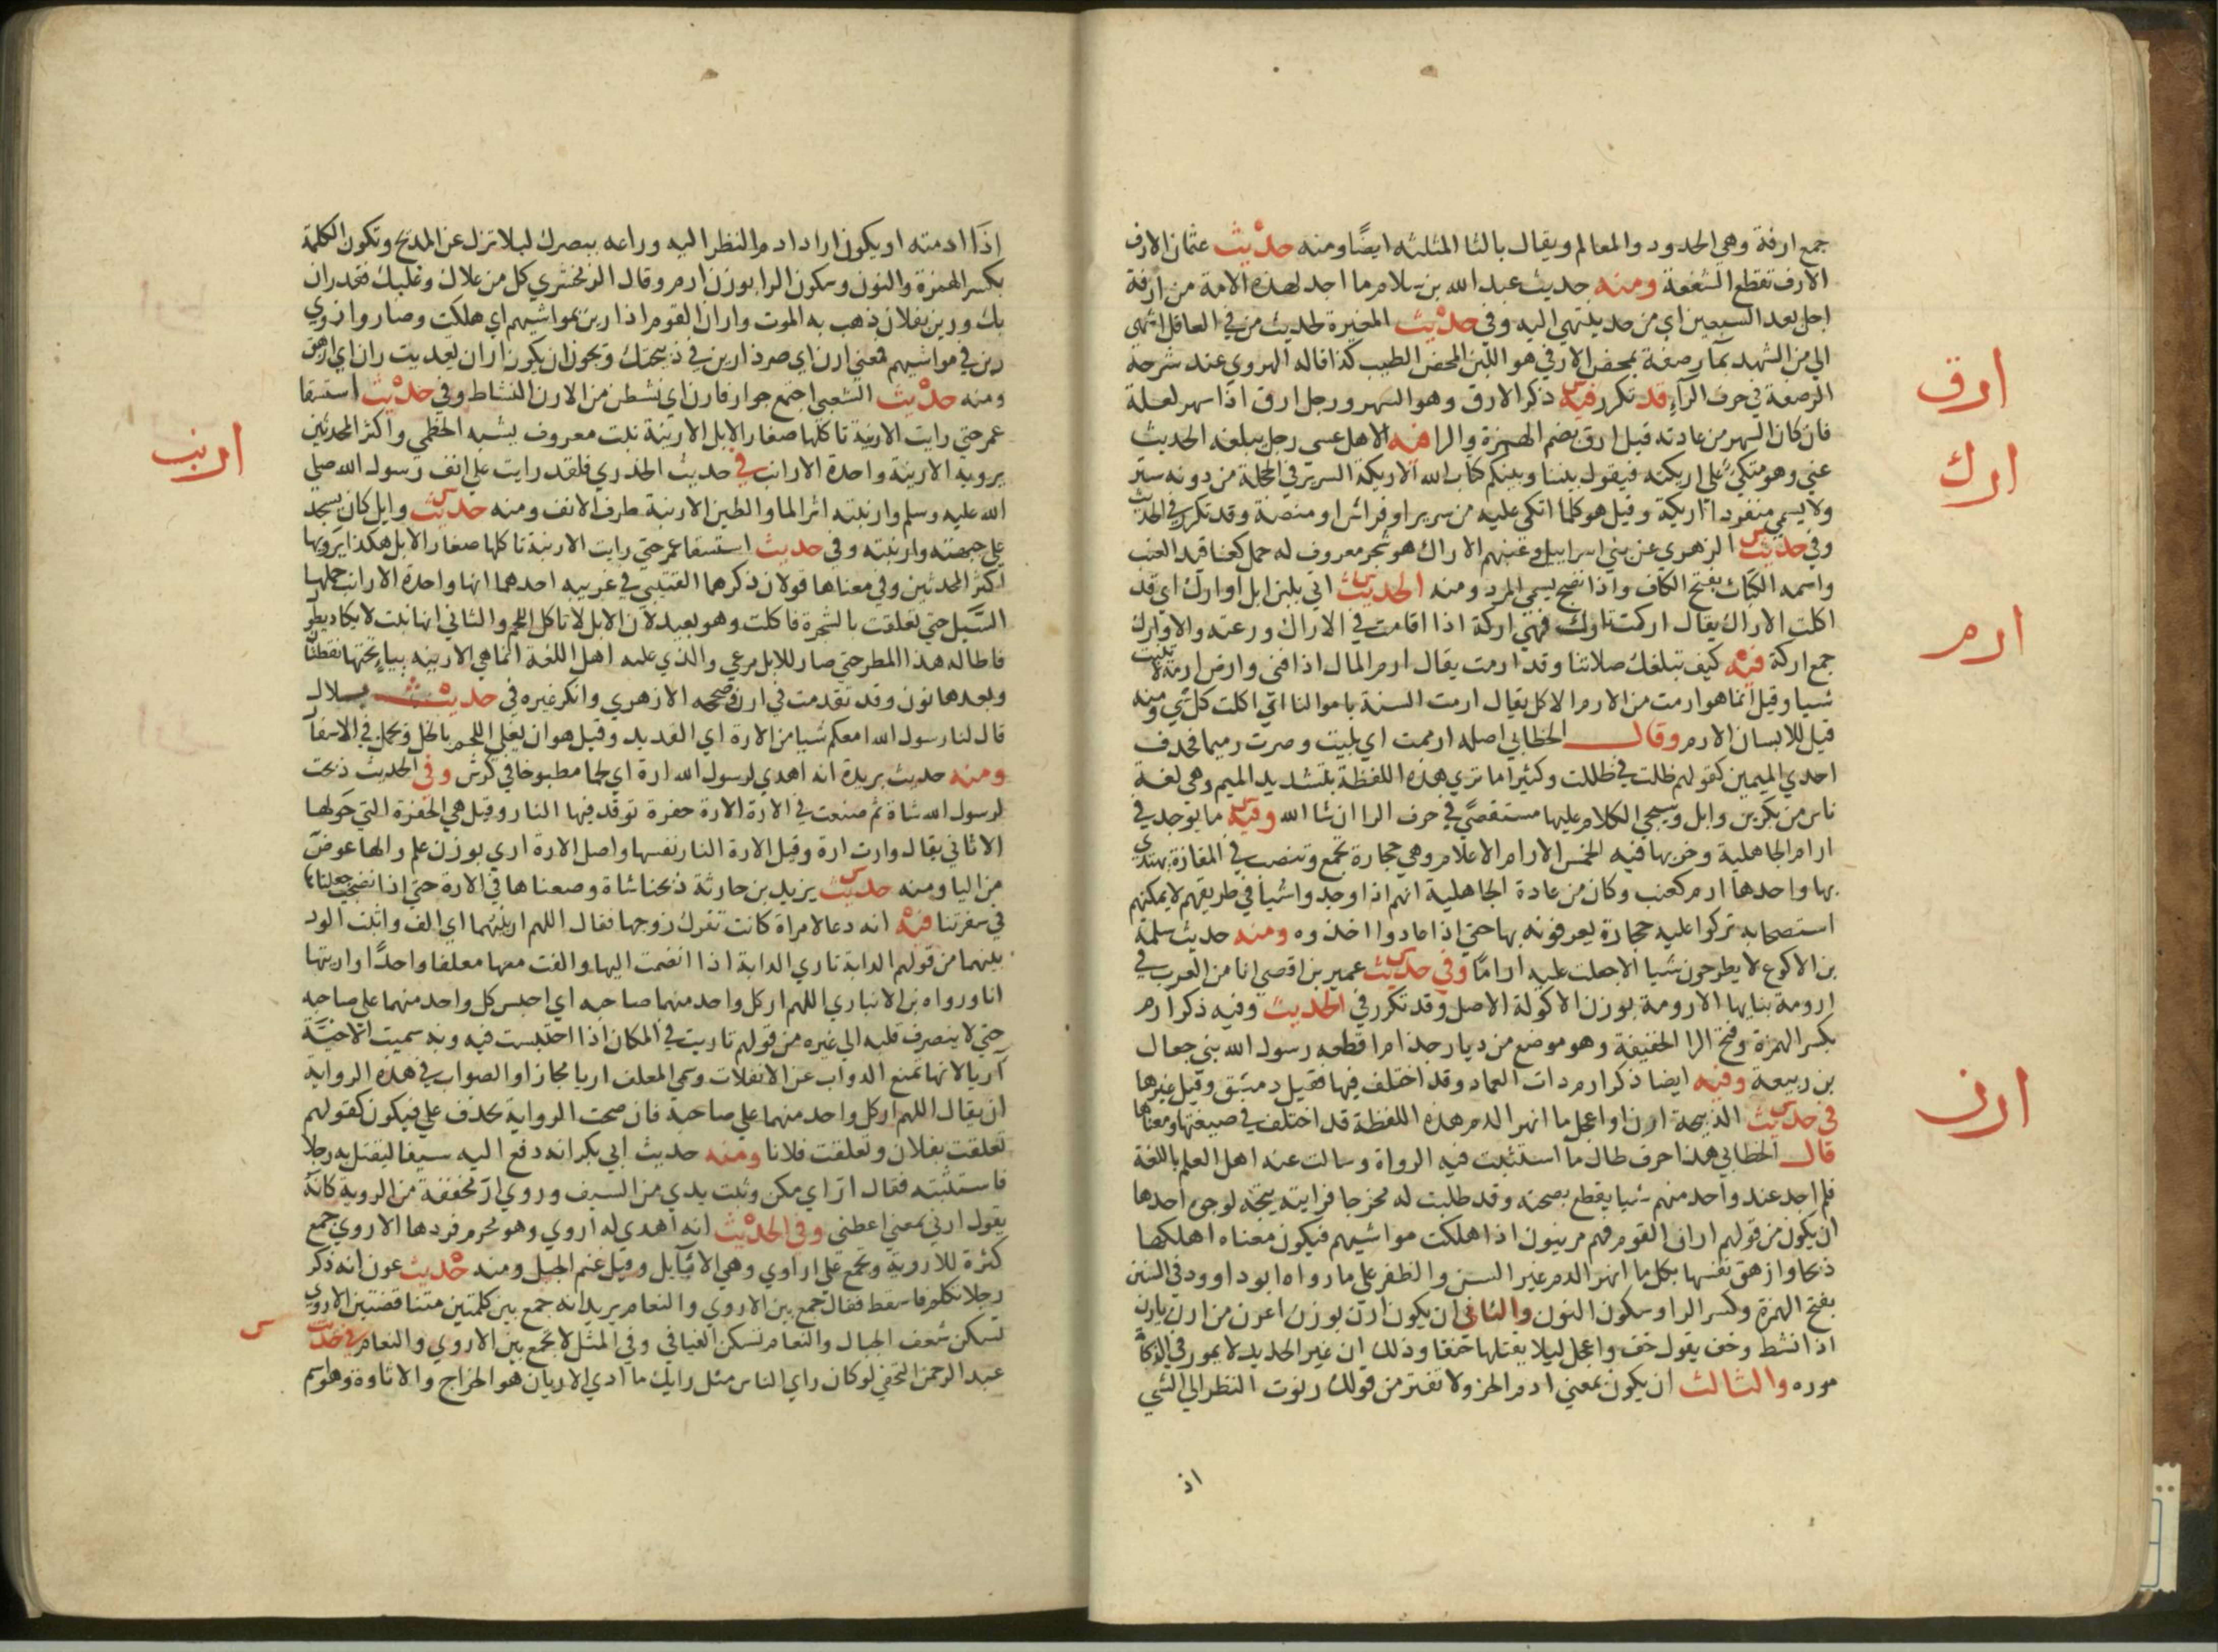 جمع ارفة وهي الحدود والمعالم ويقال بالثا المثلثه ايضًا ومنه حديث عثمان الارف
الارف تقطع الشفعة ومنه حديث عبد الله بن سلام ما اجد لهذه الامة من ارفة
اجل بعد السبعين اي من حد ينتهي اليه وفي حديث المغيرة لحديث من في العاقل اشهى
الي من الشهد بمآ رصفة بمحض الارفي هو اللبن المحض الطيب كذا قاله الهروي عند شرحه
الرصفة في حرف الرآء قد تكرر فيه ذكر الارق وهو السهر ورجل ارق اذا سهر لعلة
ارق
فان كان السهر من عادته قيل ارق بضم الهمزة والرا فيه الا هل عسى رجل يبلغه الحديث
ارك
عني وهو متكئ على اريكته فيقول بيننا وبينكم كتاب الله الاريكة السرير في الحجلة من دونه ستر
ولا يسمى منفردا اريكة وقيل هو كلما اتكى عليه من سرير او فراش او منصة وقد تكرر في الحديث
وفي حديث الزهري عن بني اسراييل وعنبهم الاراك هو شجر معروف له حمل كعناقيد العنب
واسمه الكباث بفتح الكاف واذا نضج يسمى المرد ومنه الحديث اتي بلبن ابل اوارك اي قد
اكلت الاراك يقال اركت تارك فهي اركة اذا اقامت في الاراك ورعته والاوارك
ارم
جمع اركة فيه كيف تبلغك صلاتنا وقد ارمت يقال ارم المال اذا فنى وارض ارمة لا تنبت
شيا وقيل انما هو ارمت من الارم الاكل يقال ارمت السنة باموالنا اي اكلت كل شي ومنه
قيل للاسنان الارم وقال الخطابي اصله ارممت اي بليت وصرت رميما فحذف
احدى الميمين كقولهم ظلت في ظللت وكثيرا ما تروي هذه اللفظة بتشديد الميم وهي لغة
ناس من بكر بن وايل وسيجي الكلام عليها مستقصًى في حرف الرا ان شا الله وفيه ما يوجد في
ارام الجاهلية وخربها فيه الخمس الارام الاعلام وهي حجارة تجمع وتنصب في المفازة يهتدي
بها واحدها ارم كعنب وكان من عادة الجاهلية انهم اذا وجدوا شيأ في طريقهم لا يمكنهم
استصحابه تركوا عليه حجارة يعرفونه بها حتى اذا عادوا اخذوه ومنه حديث سلمة
بن الاكوع لا يطرحون شيا الا جعلت عليه ارامًا وفي حديث عمير بن اقصى انا من العرب في
ارومة بنايها الارومة بوزن الاكولة الاصل وقد تكرر في الحديث وفيه ذكر ارم
بكسر الهمزة وفتح الرا الخفيفة وهو موضع من ديار جذام اقطعه رسول الله بني جعال
بن ربيعة وفيه ايضا ذكر ارم ذات العماد وقد اختلف فيها فقيل دمشق وقيل غيرها
ارن
في حديث الذبيحة ارن او اعجل ما انهر الدم هذه اللفظة قد اختلف في صيغتها ومعناها
قال الخطابي هذا حرف طال ما استثبت فيه الرواة وسالت عنه اهل العلم باللغة
فلم اجد عند واحد منهم شيا يقطع بصحته وقد طلبت له مخرجا فرايته يتجه لوجوه احدها
ان يكون من قولهم اران القوم فهم مرينون اذا هلكت مواشيهم فيكون معناه اهلكها
ذبحا وازهق نفسها بكل ما انهر الدم غير السن والظفر على ما رواه ابو داوود في السنن
بفتح الهمزة وكسر الرا وسكون النون والثاني ان يكون ارن بوزن اعرن من ارن يارن
اذا نشط وخف يقول خف واعجل ليلا يقتلها خنقا وذلك ان غير الحديد لا يمور في الذكاة
موره والثالث ان يكون بمعنى ادم الحز ولا تفتر من قولك رنوت النظر الي الشي
اذ
اذا ادمته او يكون اراد ادم النظر اليه وراعه ببصرك ليلا تزل عن المذبح وتكون الكلمة
بكسر الهمزة والنون وسكون الرا بوزن ارم وقال الزمخشري كل من علاك وغلبك فقد ران
بك ورين بفلان ذهب به الموت واران القوم اذا رين بمواشيهم اي هلكت وصاروا ذوي
رين في مواشيهم فمعنى ارن اي صر ذا رين في ذبيحتك ويجوز ان يكون اران تعديت ران اي ازهق
ومنه حديث الشعبي اجتمع جوار فارن اي نشطن من الارن النشاط وفي حديث استسقا
عمر حتى رايت الارنية تاكلها صغار الابل الارينة نبت معروف يشبه الخطمي واكثر المحدثين
ارنب
يرويه الارنبة واحدة الارانب في حديث الخدري فلقد رايت على انف رسول الله صلى
الله عليه وسلم وارنبته اثر الما والطين الارنبة طرف الانف ومنه حديث وايل كان يسجد
على جبهته وارنبته وفي حديث استسقا عمر حتى رايت الارنبة تاكلها صغار الابل هكذا يرويها
اكثر المحدثين وفي معناها قولان ذكرهما القتيبي في غريبه احدهما انها واحدة الارانب حملها
السَّيل حتى تعلقت بالشجرة فاكلت وهو بعيد لان الابل لا تاكل اللحم والثاني انها نبت لا يكاد يطول
فاطاله هذا المطر حتى صار للابل مرعى والذي عليه اهل اللغة انما هي الارينه بياءٍ تحتها نقطتان
وبعدها نون وقد تقدمت في ارن وصححه الازهري وانكر غيره في حديث بلال
قال لنا رسول الله امعكم شيا من الارة اي القديد وقيل هو ان يغلى اللحم بالخل ويحمل في الاسفار
ومنه حديث بريدة انه اهدي لرسول الله ارة اي لحما مطبوخا في كرش وفي الحديث ذبحت
لرسول الله شاة ثم صنعت في الارة الارة حفرة توقد فيها النار وقيل هي الحفرة التي حولها
الاثافي يقال وارت ارة وقيل الارة النار نفسها واصل الارة اري بوزن علم والها عوض
من اليا ومنه حديث يزيد بن حارثة ذبحنا شاة وصعناها في الارة حتى اذا نضجت جعلناها
في سفرتنا فيه انه دعا لامراة كانت تفرك زوجها فقال اللهم ار بينهما اي الف واثبت الود
بينهما من قولهم الدابة تاري الدابة اذا انضمت اليها والفت معها معلفا واحدًا واريتها
انا ورواه بن الانباري اللهم ار كل واحد منهما صاحبه اي احبس كل واحد منهما على صاحبه
حتى لا ينصرف قلبه الى غيره من قولهم تاريت في المكان اذا احتبست فيه وبه سميت الاخيَّة
آريا لانها تمنع الدواب عن الانفلات وسمي المعلف اريا مجازا والصواب في هذه الرواية
ان يقال اللهم ار كل واحد منهما على صاحبه فان صحت الرواية بحذف على فيكون كقولهم
تعلقت بفلان وتعلقت فلانا ومنه حديث ابي بكر انه دفع اليه سيفا ليقتل به رجلا
فاستثبته فقال ارّ اي مكن وثبت يدي من السيف وروي ارَ مخففة من الروية كانه
يقول ارني بمعنى اعطني وفي الحديث انه اهدي له اروي وهو محرم فردها الاروي جمع
كثرة للاروية وتجمع على اراوي وهي الايآيل وقيل غنم الجبل ومنه حديث عون انه ذكر
رجلا تكلم فاسقط فقال جمع بين الاروي والنعام يريد انه جمع بين كلمتين متناقضتين الاروي
تسكن شعف الجبال والنعام تسكن الفيافي وفي المثل لا تجمع بين الاروي والنعام في حديث
س
عبد الرحمن النخعي لو كان راي الناس مثل رايك ما ادي الاريان هو الخراج والاتاوة وهو اسم